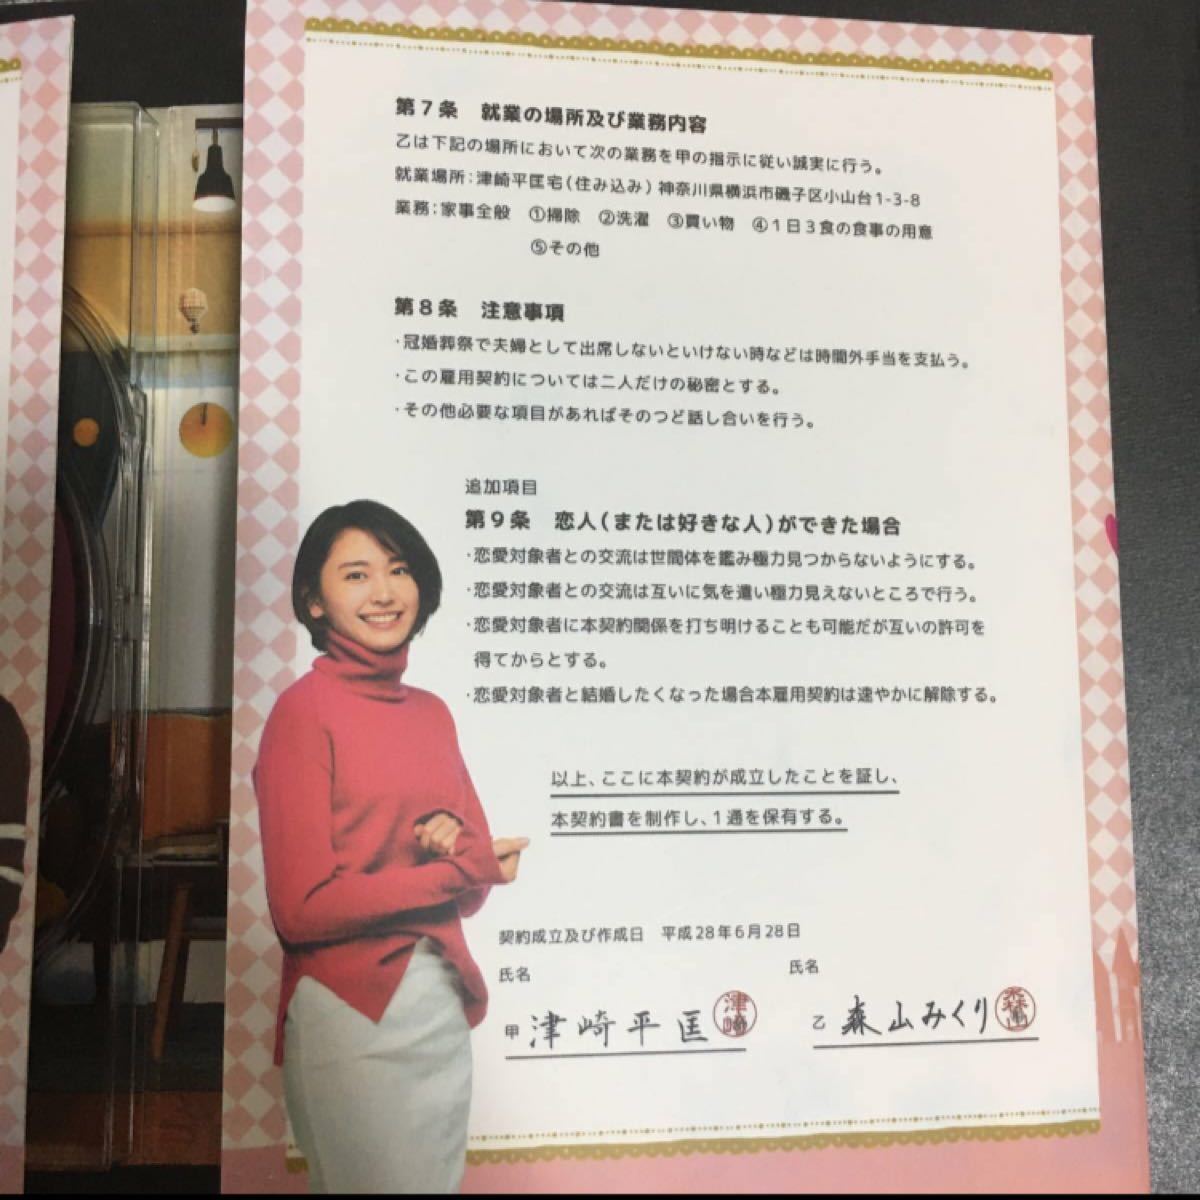 第7条 就業の場所及び業務内容
乙は下記の場所において次の業務を甲の指示に従い誠実に行う。
就業場所:津崎平匡宅(住み込み) 神奈川県横浜市磯子区小山台1-3-8
業務:家事全般 ①掃除 ②洗濯 ③買い物 ④1日3食の食事の用意
⑤その他
第8条 注意事項
・冠婚葬祭で夫婦として出席しないといけない時などは時間外手当を支払う。
・この雇用契約については二人だけの秘密とする。
・その他必要な項目があればそのつど話し合いを行う。
追加項目
第9条 恋人(または好きな人)ができた場合
・恋愛対象者との交流は世間体を鑑み極力見つからないようにする。
・恋愛対象者との交流は互いに気を遣い極力見えないところで行う。
・恋愛対象者に本契約関係を打ち明けることも可能だが互いの許可を
得てからとする。
・恋愛対象者と結婚したくなった場合本雇用契約は速やかに解除する。
以上、ここに本契約が成立したことを証し、
本契約書を制作し、1通を保有する。
契約成立及び作成日 平成28年6月28日
氏名 氏名
甲 津崎平匡 津崎 乙 森山みくり 森山